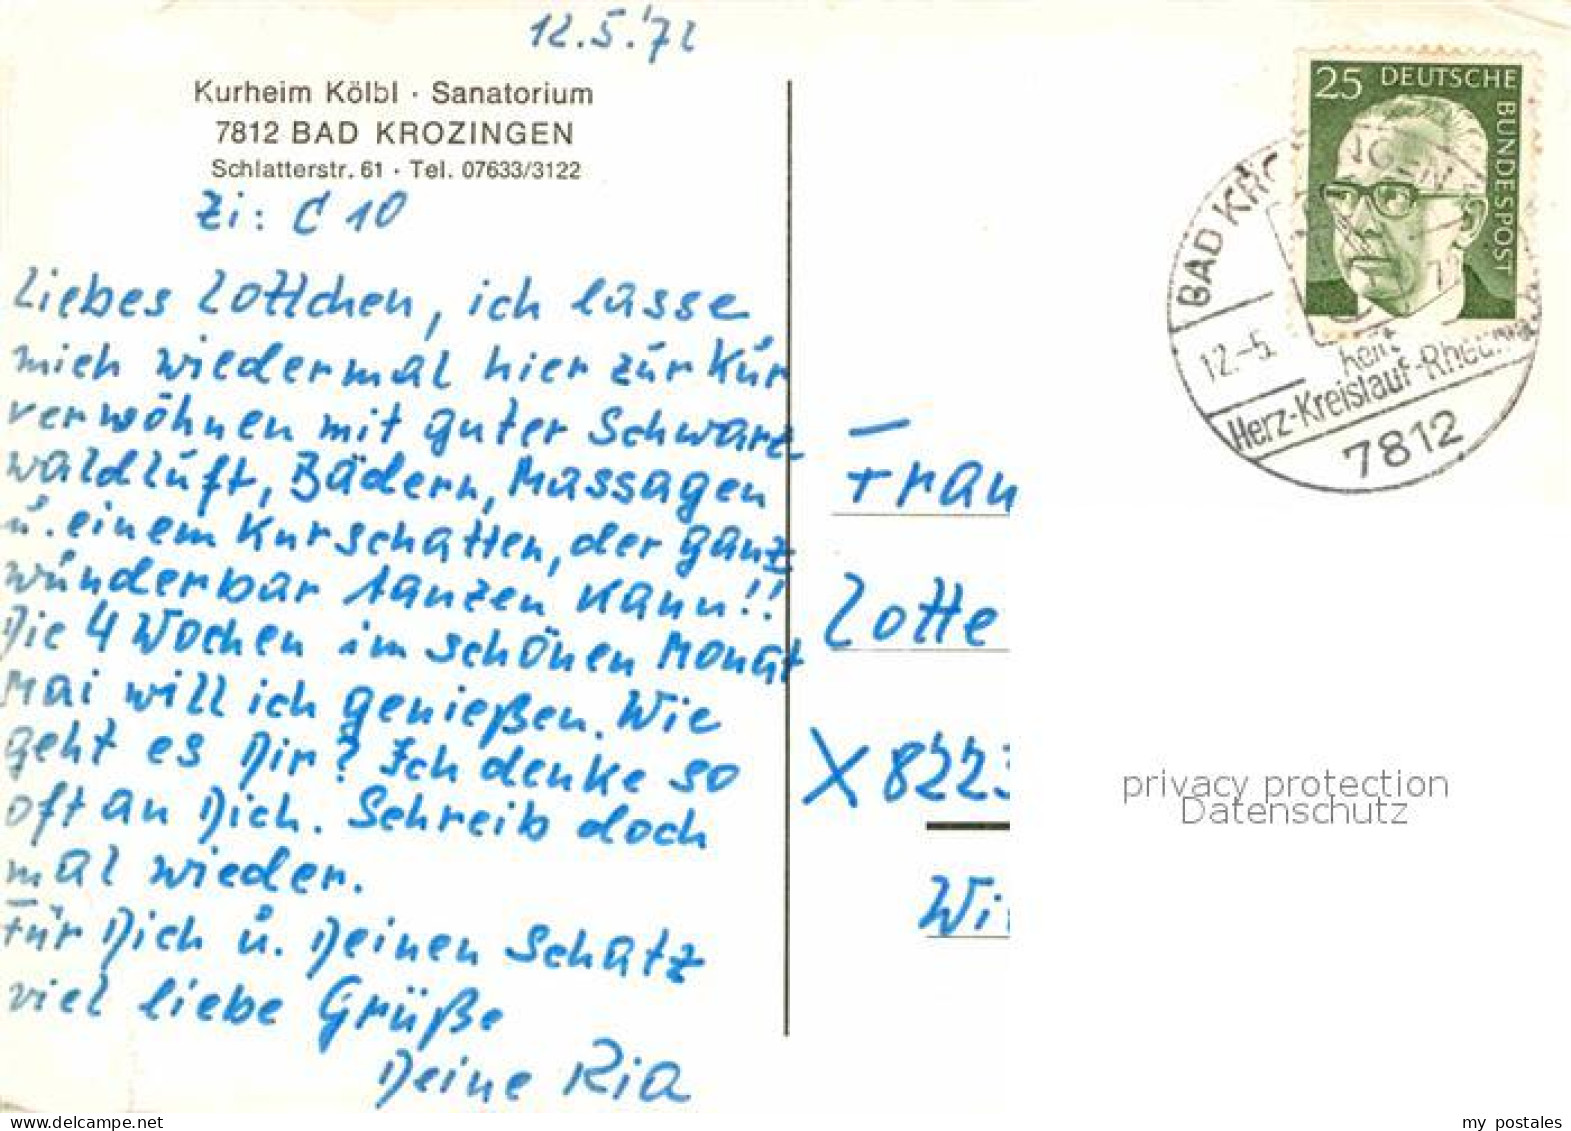 12.5.'72
Kurheim Kölbl · Sanatorium
7812 BAD KROZINGEN
Schlatterstr. 61 · Tel. 07633/3122
Zi: C 10
Liebes Lottchen, ich lasse
mich wiedermal hier zur Kur
verwöhnen mit guter Schwarz-
waldluft, Bädern, Massagen
u. einem Kurschatten, der ganz
wunderbar tanzen kann!!
Die 4 Wochen im schönen Monat
Mai will ich genießen. Wie
geht es Dir? Ich denke so
oft an Dich. Schreib doch
mal wieder.
Für Dich u. Deinen Schatz
viel liebe Grüße
Deine Ria
25 DEUTSCHE
BUNDESPOST
BAD KROZINGEN
12.-5.
heilt
Herz-Kreislauf-Rheuma
7812
Frau
Lotte
X 8223
Wi
privacy protection
Datenschutz
www.delcampe.net
my_postales